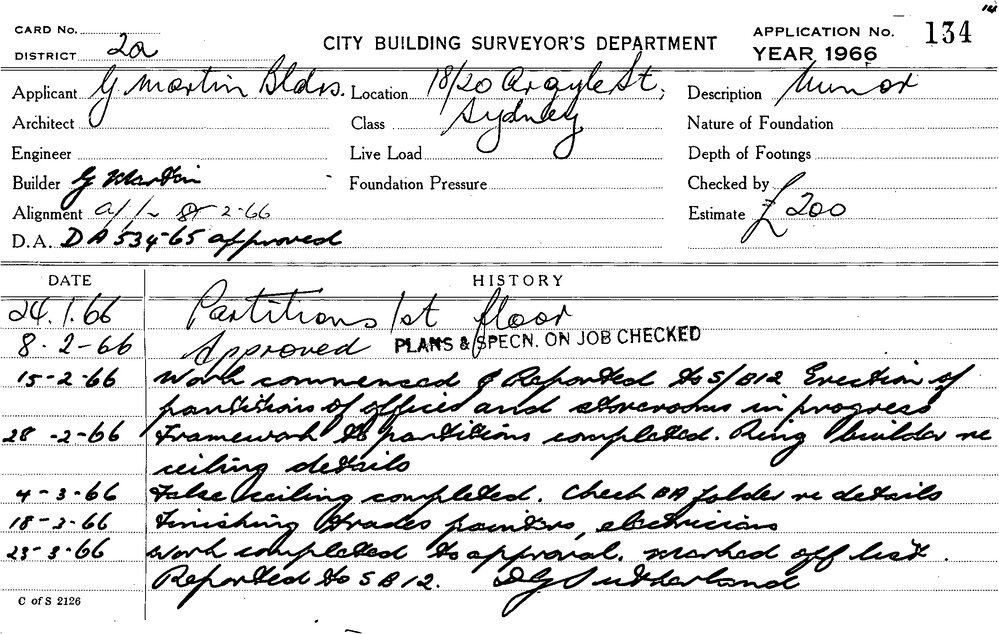 14
CARD No.
DISTRICT 2a
CITY BUILDING SURVEYOR'S DEPARTMENT
APPLICATION No. 134
YEAR 1966
Applicant G Martin Bldrs. Location 18/20 Argyle St, Description Minor
Architect Class Sydney Nature of Foundation
Engineer Live Load Depth of Footings
Builder G Martin Foundation Pressure Checked by
Alignment 2-66 Estimate £200
D.A. DA 534-65 approved
DATE HISTORY
24.1.66 Partitions 1st floor
8-2-66 Approved PLANS & SPECN. ON JOB CHECKED
15-2-66 Work commenced & Reported to S/B12 Erection of
partitions of offices and storerooms in progress
28-2-66 Framework to partitions completed. Ring builder re
ceiling details
4-3-66 False ceiling completed. Check BA folder re details
18-3-66 Finishing trades painters, electricians
23-3-66 Work completed to approval. Marked off list.
Reported to SB12. D G Sutherland
C of S 2126